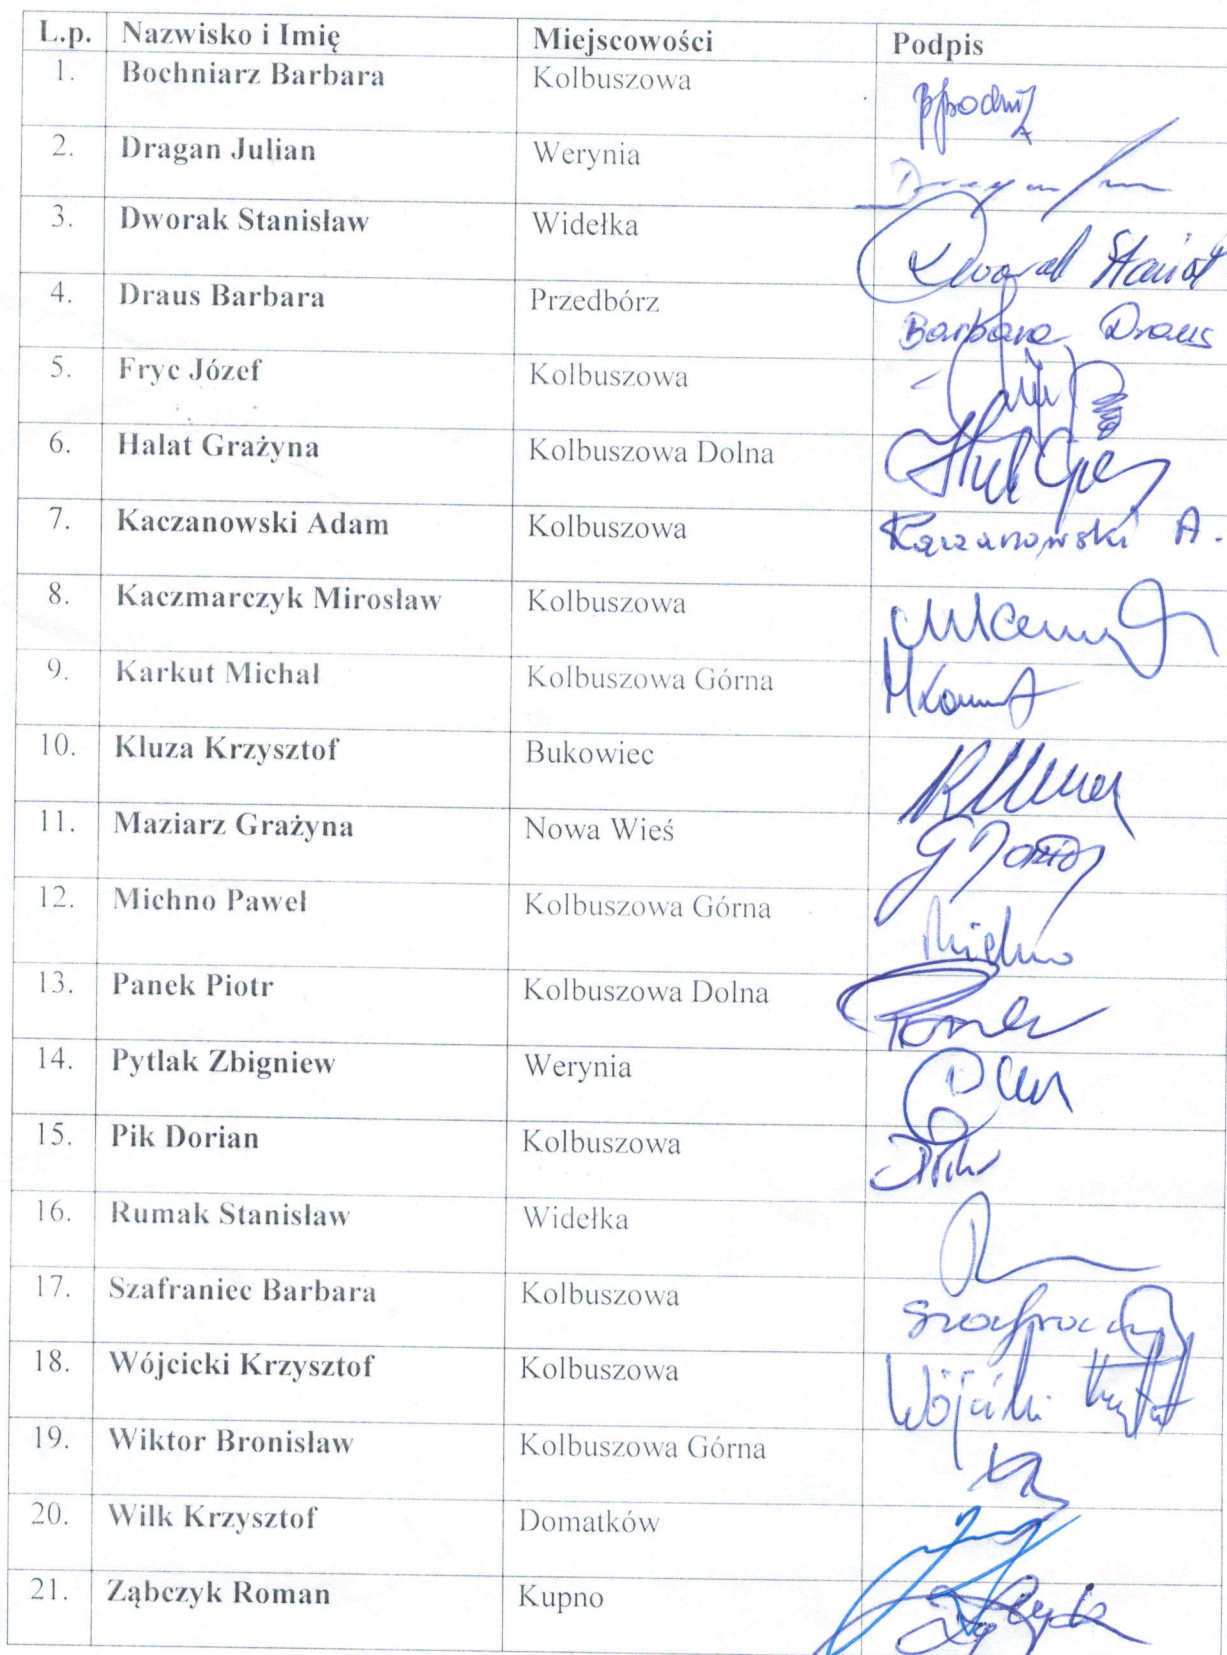 L.p. Nazwisko i Imię Miejscowości Podpis
1. Bochniarz Barbara Kolbuszowa
2. Dragan Julian Werynia
3. Dworak Stanisław Widełka Dworak
4. Draus Barbara Przedbórz Barbara Draus
5. Fryc Józef Kolbuszowa
6. Halat Grażyna Kolbuszowa Dolna
7. Kaczanowski Adam Kolbuszowa Kaczanowski A.
8. Kaczmarczyk Mirosław Kolbuszowa
9. Karkut Michał Kolbuszowa Górna
10. Kluza Krzysztof Bukowiec
11. Maziarz Grażyna Nowa Wieś
12. Michno Paweł Kolbuszowa Górna Michno
13. Panek Piotr Kolbuszowa Dolna
14. Pytlak Zbigniew Werynia
15. Pik Dorian Kolbuszowa
16. Rumak Stanisław Widełka
17. Szafraniec Barbara Kolbuszowa
18. Wójcicki Krzysztof Kolbuszowa Wójcicki
19. Wiktor Bronisław Kolbuszowa Górna
20. Wilk Krzysztof Domatków
21. Ząbczyk Roman Kupno